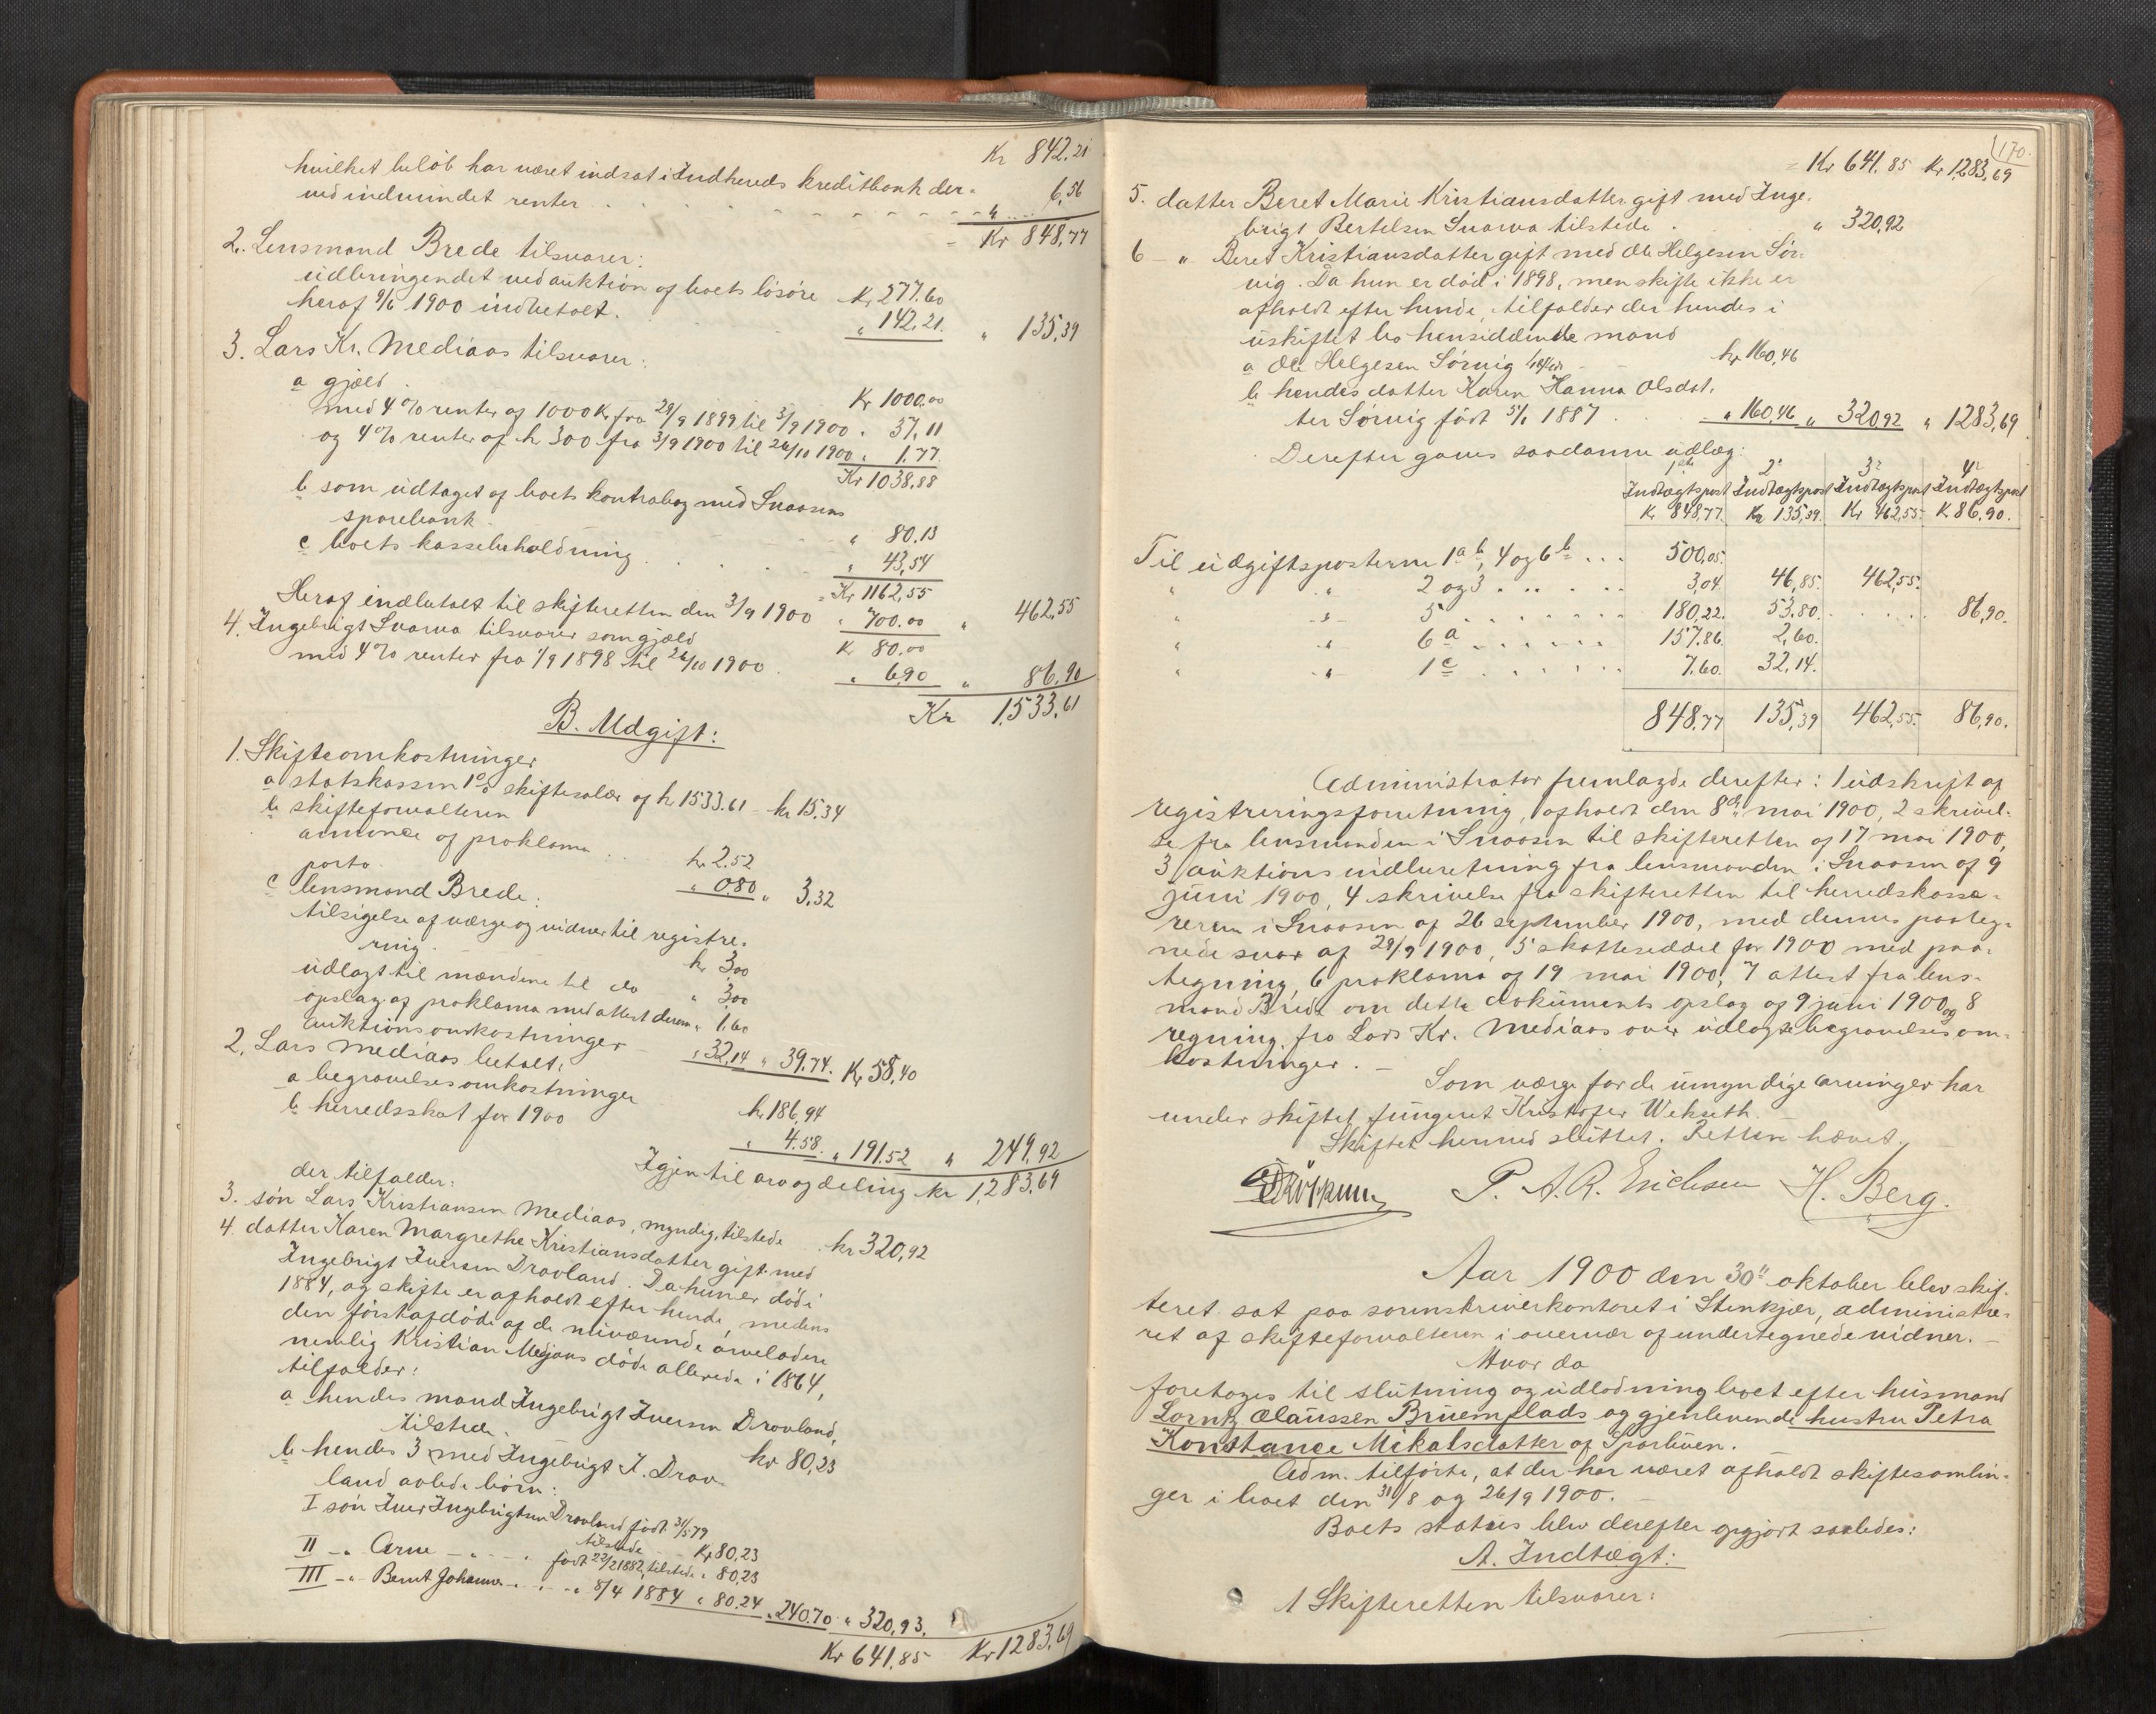 Kr 842.21
hvilket beløb har været indsat i Indhereds kreditbank der-
ved indvundet renter . . . . " 6,56
Kr 848,77
2. Lensmand Brede tilsvarer:
udbringendet ved auktion af boets løsøre Kr 277.60
heraf 9/6 1900 indbetalt. " 142,21. " 135,39
3. Lars Kr. Mediaas tilsvarer:
a gjæld . Kr 1000.00
med 4% renter af 1000 Kr fra 28/9 1899 til 3/9 1900 " 37,11
og 4% renter af kr 300 fra 3/9 1900 til 26/10 1900 " 1.77
Kr 1038,88
b som udtaget af boets kontrabog med Snaasens
sparebank " 80.13
c boets kassebeholdning . . . . " 43,54
Kr 1162,55
Heraf indbetalt til skifteretten den 3/9 1900 " 700.00 " 462,55
4. Ingebrigt Svarva tilsvarer som gjæld K 80.00
med 4% renter fra 1/9 1898 til 26/10 1900 . " 6,90 " 86,90
Kr 1533,61
B. Udgift:
1. Skifteomkostninger
a statskassen 1% skiftesalær af kr 1533.61 - kr 15,34
b skifteforvalteren
annonce af proklama . . kr 2.52
porto " 0.80 " 3,32
c lensmand Brede:
tilsigelse af værge og vidner til registre-
ring . kr 3,00
udlagt til mændene til do " 3,00
opslag af proklama med attest derom " 1,60
auktionsomkostninger " 32,14 " 39.74. Kr 58,40
2. Lars Mediaas betalt:
a begravelsesomkostninger kr 186,94
b herredsskat for 1900 " 4.58. " 191.52 " 249,92
Igjen til arv og deling Kr 1283,69
der tilfalder:
3. søn Lars Kristiansen Mediaas, myndig, tilstede . kr 320,92
4. datter Karen Margrethe Kristiansdatter gift med
Ingebrigt Iversen Dravland. Da hun er død i
1884, og skifte er afholdt efter hende, medens
den førstafdøde af de nuværende arveladere
nemlig Kristian Mediaas døde allerede i 1864,
tilfalder:
a hendes mand Ingebrigt Iversen Dravland,
tilstede. kr 80,23
b hendes 3 med Ingebrigt I. Drav-
land avlede børn:
I søn Iver Ingebrigtsen Dravland født 31/5 79
tilstede Kr 80,23
II - " Arne - " - " født 22/2 1882, tilstede " 80,23
III - " Bernt Johannes - " - " 8/4 1884 " 80.24 " 240.70 " 320,93.
Kr 641,85 Kr 1283,69
170.
Kr 641.85 Kr 1283,69
5. datter Beret Marie Kristiansdatter gift med Inge-
brigt Bertelsen Svarva tilstede . " 320,92
6 - " Beret Kristiansdatter gift med Ole Helgesen Sør-
vig. Da hun er død i 1898, men skifte ikke er
afholdt efter hende, tilfalder der hendes i
uskiftet bo hensiddende mand
a Ole Helgesen Sørvig kr 160,46
b hendes datter Karen Hanna Olsdat-
ter Sørvig født 5/1 1887 . " 160,46 " 320,92 " 1283,69
Derefter gaves saadanne udlæg:
1ste 2n 3n 4n
Indtægtspost Indtægtspost Indtægtspost Indtægtspost
Kr 848,77. Kr 135,39. Kr 462,55. K 86,90.
Til udgiftsposterne 1a b, 4 og 6b . . . 500,05.
" " 2 og 3 . . . . . 3,04 46,85. 462,55.
" " 5 . . . . . 180,22. 53,80. . . . . 86,90.
" " 6a . . . . . 157,86. 2,60.
" " 1c . . . . . 7.60. 32,14.
848,77 135,39 462,55. 86,90.
Administrator fremlagde derefter: 1 udskrift af
registreringsforretning, afholdt den 8de mai 1900, 2 skrivel-
se fra lensmanden i Snaasen til skifteretten af 17 mai 1900,
3 auktionsindberetning fra lensmanden i Snaasen af 9
juni 1900, 4 skrivelse fra skifteretten til herredskasse-
reren i Snaasen af 26 september 1900, med dennes paateg-
nede svar af 29/9 1900, 5 skatteseddel for 1900 med paa-
tegning, 6 proklama af 19 mai 1900, 7 attest fra lens-
mand Brede om dette dokuments opslag af 9 juni 1900 og 8
regning fra Lars Kr. Mediaas over udlagte begravelsesom-
kostninger. -
Som værge for de umyndige arvinger har
under skiftet fungeret Kristofer Wekseth.
Skiftet hermed sluttet. Retten hævet.
P. A. R. Erichsen H. Berg.
Aar 1900 den 30te oktober blev skif-
teret sat paa sorenskriverkontoret i Stenkjær, administre-
ret af skifteforvalteren i overvær af undertegnede vidner.
Hvor da
foretoges til slutning og udlodning boet efter husmand
Lorntz Olaussen Bruemplads og gjenlevende hustru Petra
Konstance Mikalsdatter af Sparbuen.
Adm. tilførte, at der har været afholdt skiftesamlin-
ger i boet den 31/8 og 26/9 1900. -
Boets status blev derefter opgjort saaledes:
A. Indtægt:
1 Skifteretten tilsvarer: